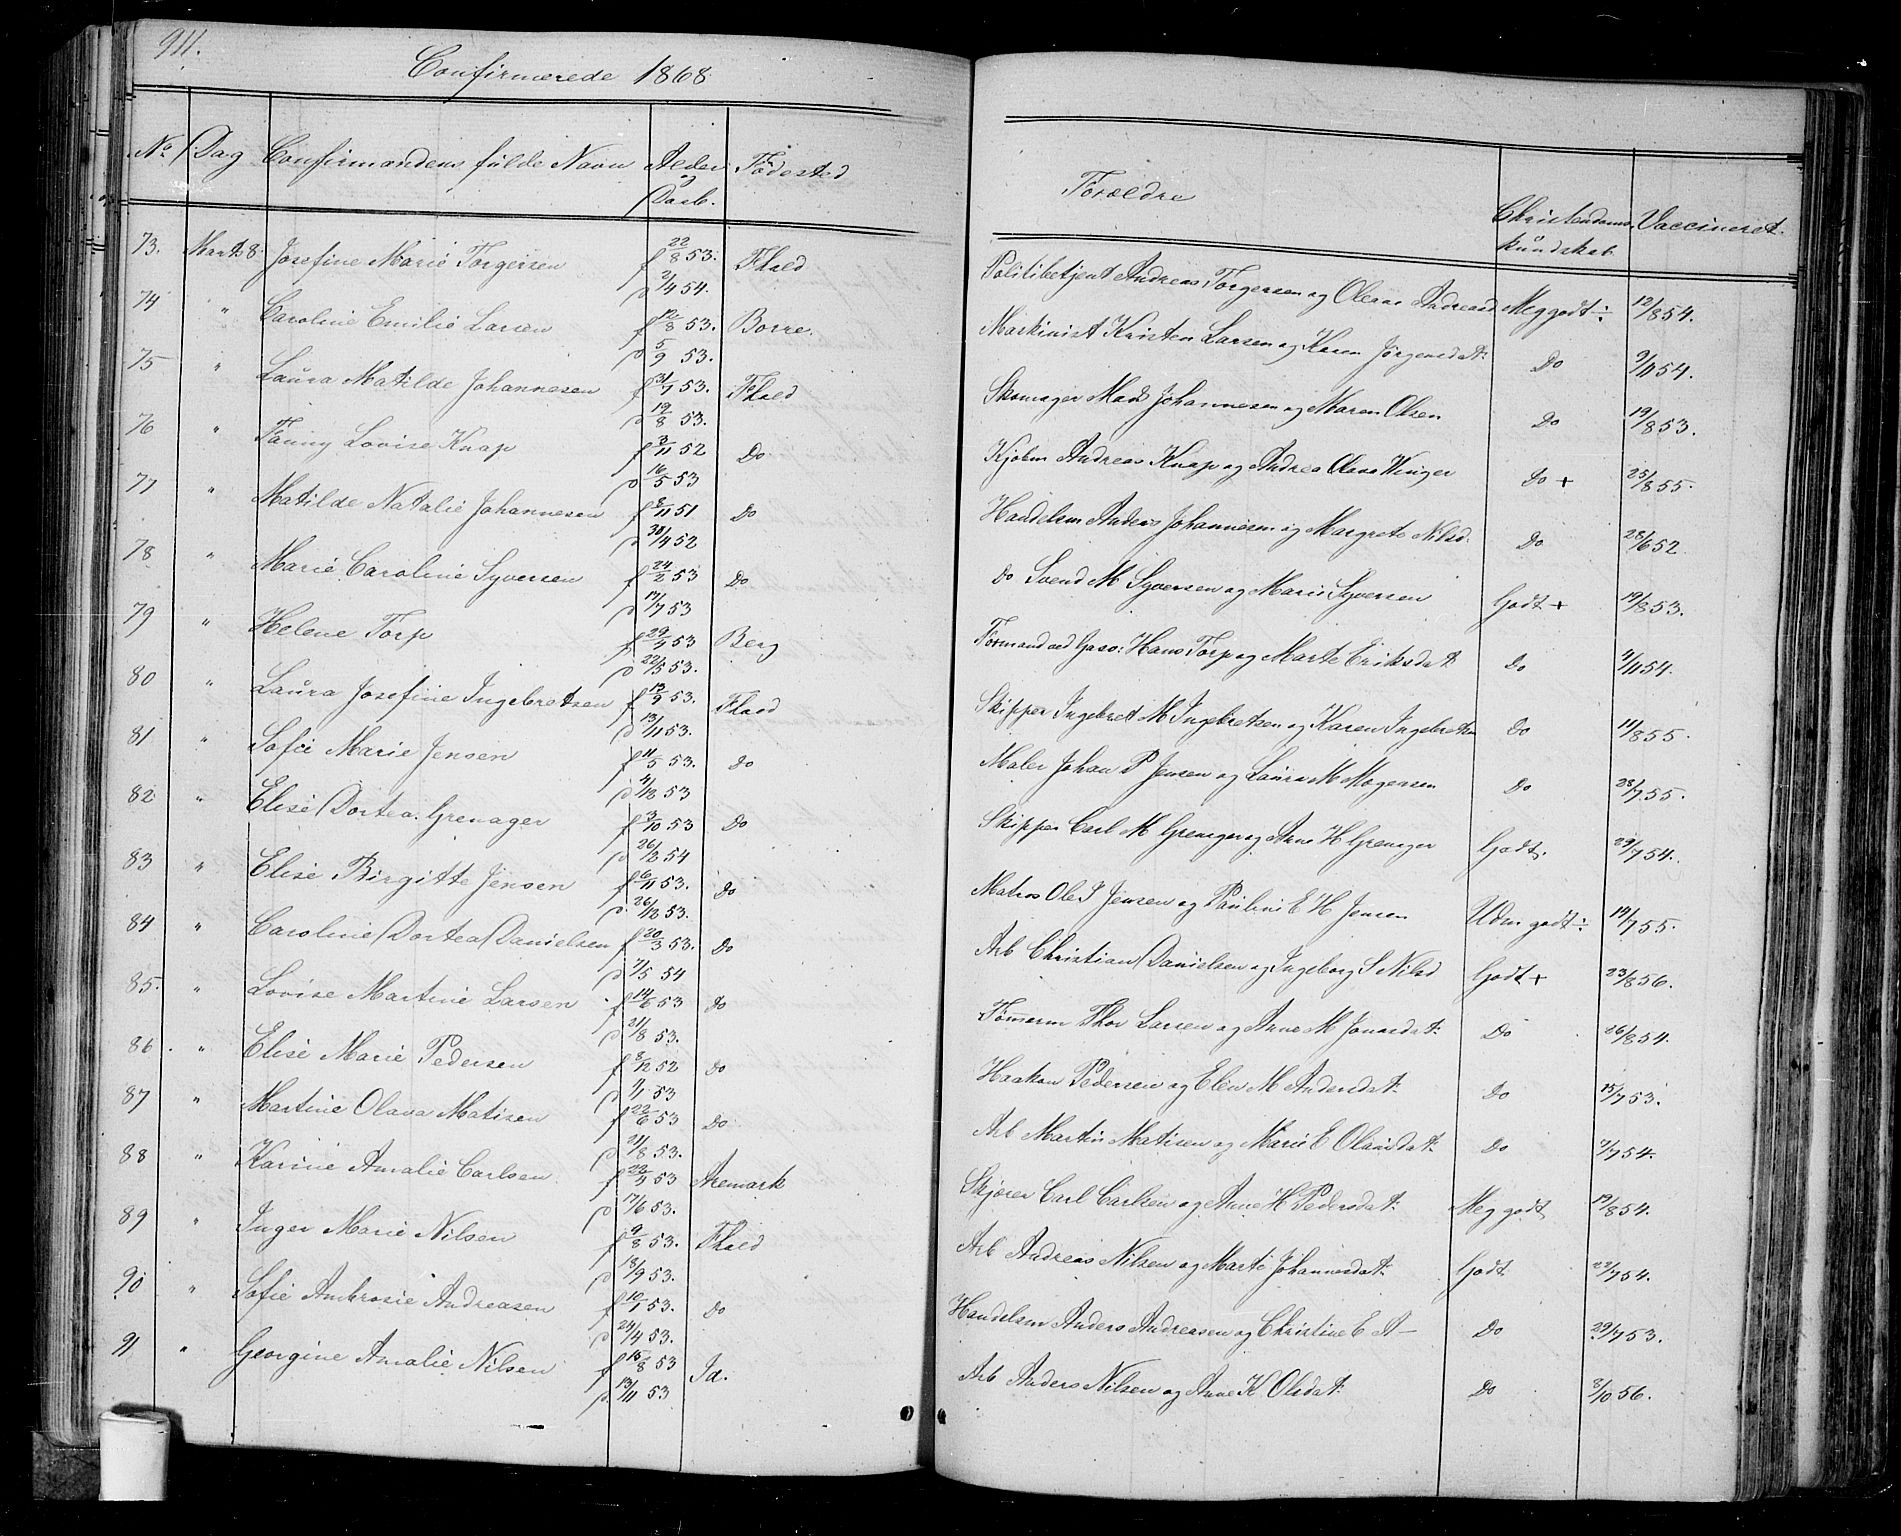 911.
Confirmerede 1868.
No Dag Confirmandens fulde Navn Alder og Daab. Fødested Forældre Christendomskundskab Vaccineret.
73. Marts 8. Josefine Marie Torgersen f 22/8 53. d 2/4 54. Fhald Politibetjent Andreas Torgersen og Olava Andreasd Meg godt ÷ 12/8 54.
74 " Caroline Emilie Larsen f 12/8 53. d 5/9 53. Borre. Maskinist Kristen Larsen og Karen Jørgensdat. Do 9/11 54.
75 " Laura Matilde Johannesen f 31/7 53. d 19/8 53. Fhald Skomager Mads Johannesen og Maren Olsen Do 19/8 53.
76 " Fanny Lovise Knap f 3/11 52 d 16/5 53 Do Kjøbm Andreas Knap og Andrea Olava Winger Do + 25/8 55.
77 " Matilde Natalie Johannesen f 8/11 51 d 30/4 52 Do Handelsm Anders Johannesen og Margrete Nilsd. Do 28/6 52.
78 " Marie Caroline Syversen f 24/2 53 d 17/7 53 Do Do Svend M Syversen og Marie Syversen Godt + 19/8 53.
79 " Helene Torp f 29/4 53 d 22/5 53. Berg Formand ved Gasv: Hans Torp og Marte Eriksdat Do 4/11 54.
80 " Laura Josefine Ingebretsen f 13/9 53. d 13/11 53. Fhald Skipper Ingebret M Ingebretsen og Karen Ingebretsen Do 11/8 55.
81 " Sofie Marie Jensen f 11/5 53. d 4/12 53 Do Maler Johan P Jensen og Laura M Mogensen Do 28/7 55.
82 " Elise Dortea Grenager f 3/10 53 d 26/2 54 Do Skipper Carl M Grenager og Anne H Grenager Godt. 29/7 54.
83 " Elise Birgitte Jensen f 6/11 53. d. 26/12 53. Do Matros Ole J Jensen og Pauline E H Jensen Udm godt ÷ 14/7 55.
84 " Caroline Dortea Danielsen f 20/3 53. d 7/5 54 Do Arb Christian Danielsen og Ingeborg S Nilsd Godt + 23/8 56.
85. " Lovise Martine Larsen f 14/6 53 d 21/8 53. Do Tømerm Thor Larsen og Anne M Jonasdat. Do 26/8 54.
86. " Elise Marie Pedersen f 8/12 52 d 4/1 53 Do Haakon Pedersen og Elen M Andersdat. Do 15/7 53.
87 " Martine Olava Matisen f 22/6 53 d 21/8 53. Do Arb Martin Matisen og Marie E Olausdat. Do 7/7 54.
88 " Karine Amalie Carlsen f 22/4 53 d 17/6 53. Aremark Skjører Carl Carlsen og Anne H Pedersdat. Meg godt 19/8 54.
89 " Inger Marie Nilsen f 9/8 53. d 18/9 53. Fhald Arb Andreas Nilsen og Marte Johannesdat. Godt 22/7 54.
90 " Sofie Ambrosie Andreasen f 10/1 53. d 24/4 53. Do Handelsm Anders Andreasen og Christine E A— Do 29/7 53.
91 " Georgine Amalie Nilsen f 15/8 53 d. 13/11 53 Id. Arb Anders Nilsen og Anne K Olsdat. Do 8/10 56.